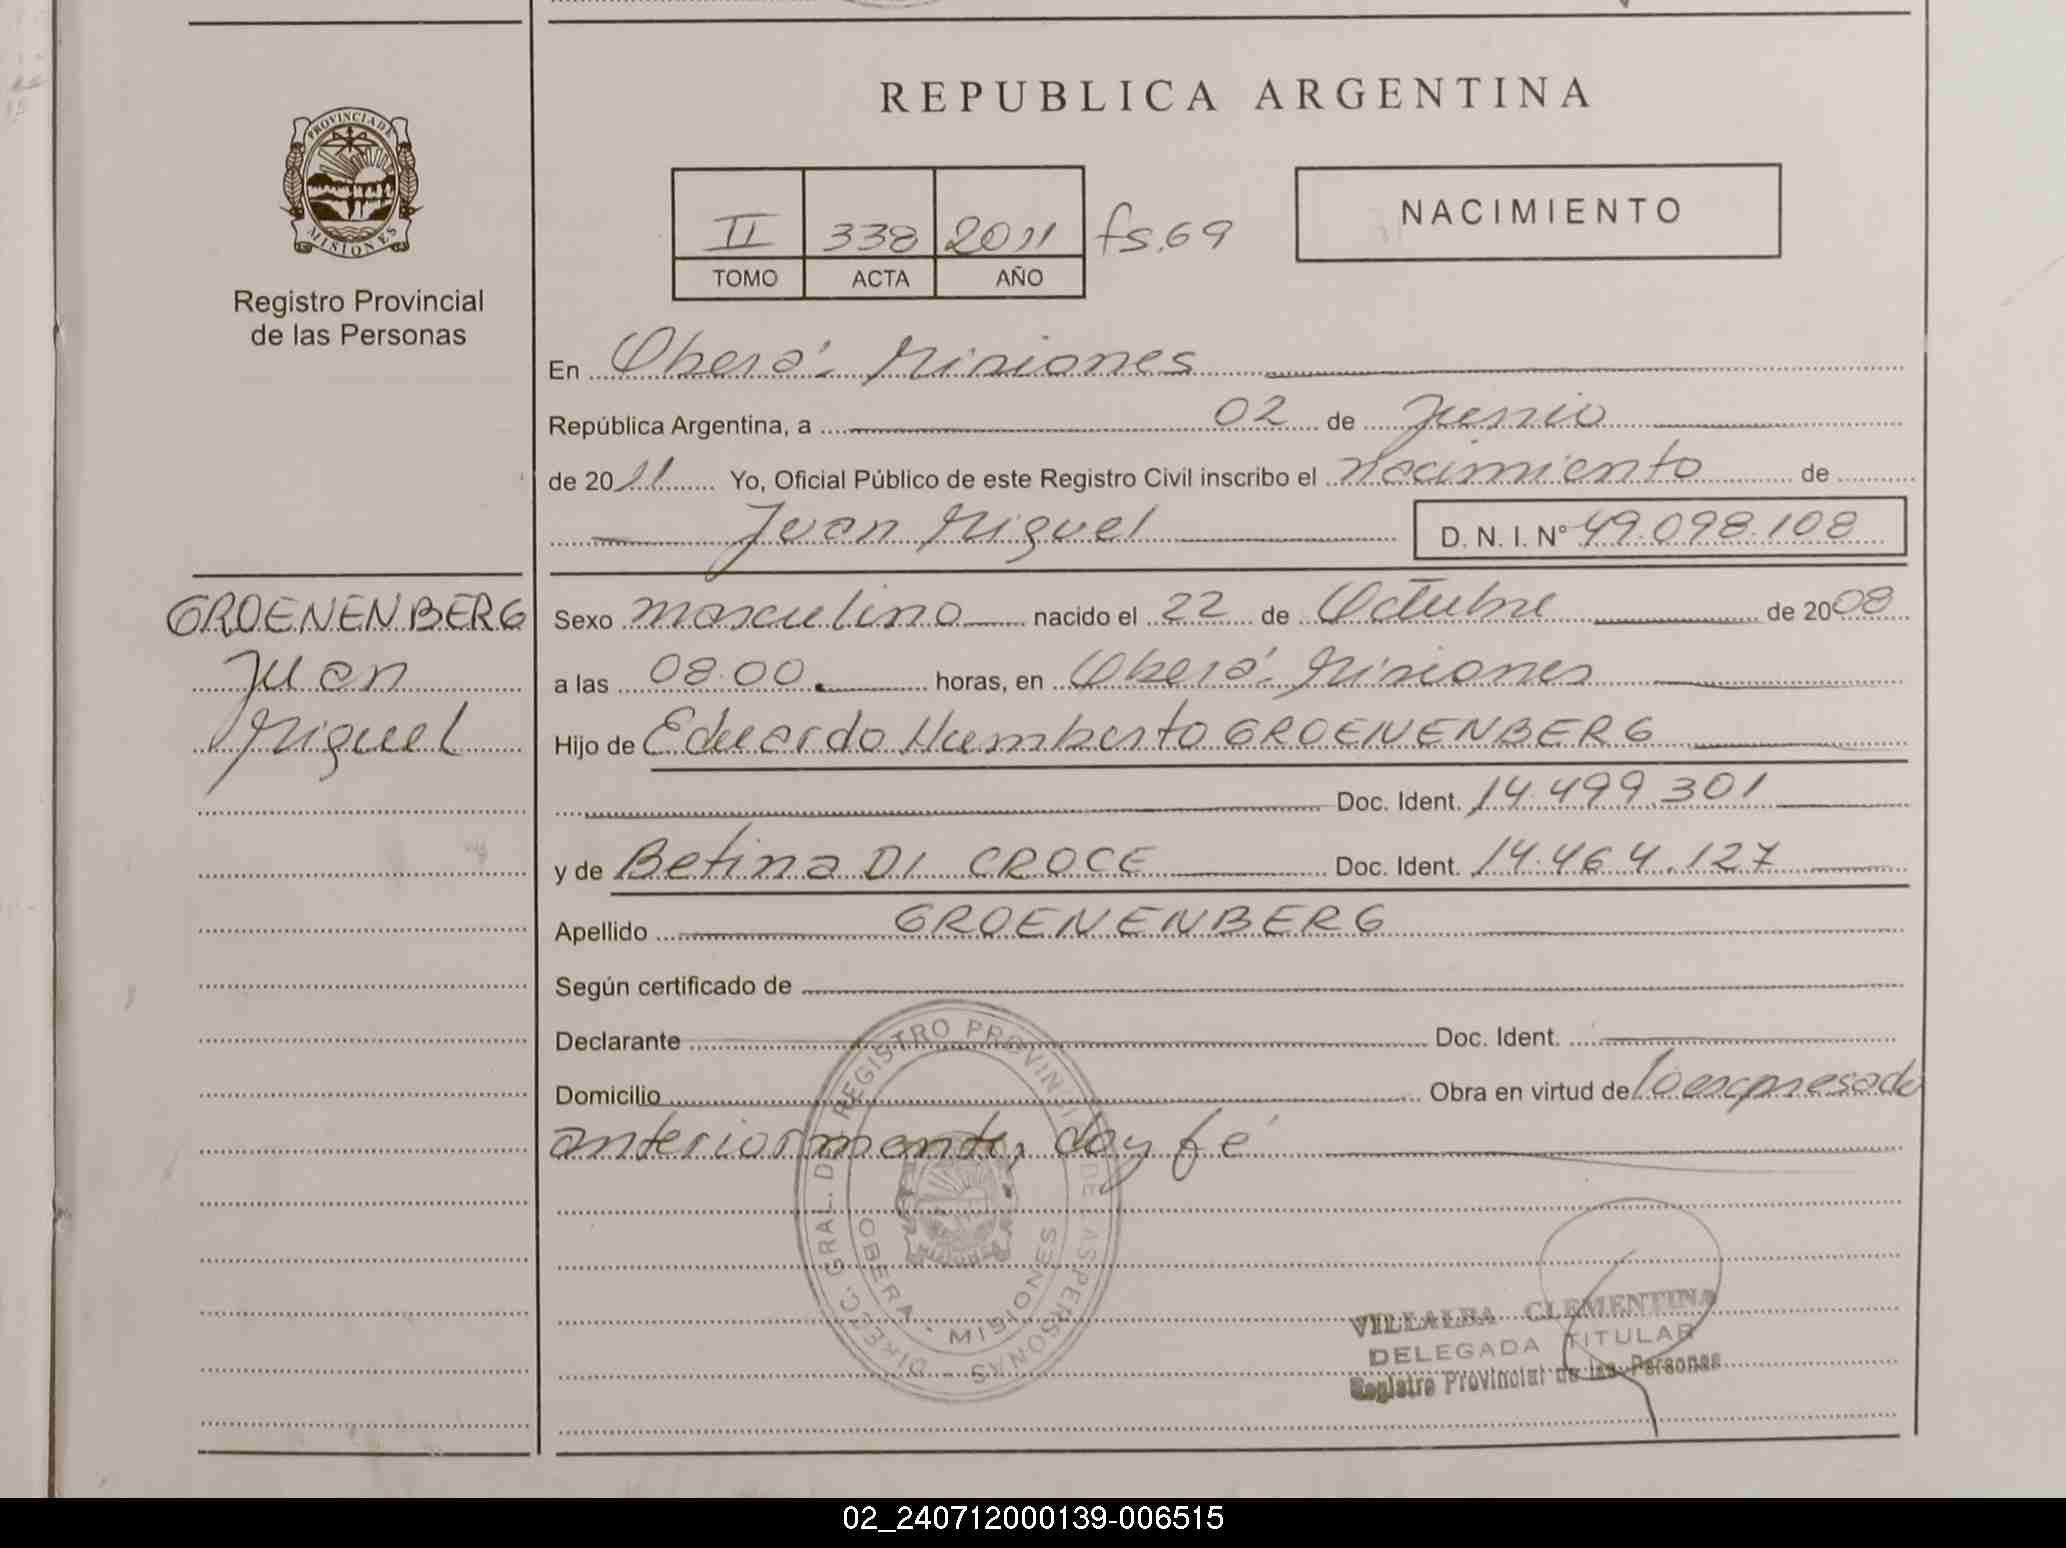 REPUBLICA ARGENTINA
PROVINCIA DE MISIONES
Registro Provincial
de las Personas
II 338 2011 fs.69
TOMO ACTA AÑO
NACIMIENTO
En Oberá. Misiones
República Argentina, a 02 de Junio
de 2011 Yo, Oficial Público de este Registro Civil inscribo el nacimiento de
Juan Miguel D. N. I. Nº 49.098.108
GROENENBERG
Juan
Miguel
Sexo masculino nacido el 22 de Octubre de 2008
a las 08.00. horas, en Oberá. Misiones
Hijo de Eduardo Humberto GROENENBERG
Doc. Ident. 14.499.301
y de Betina DI CROCE Doc. Ident. 14.464.127
Apellido GROENENBERG
Según certificado de
Declarante Doc. Ident.
Domicilio Obra en virtud de lo expresado
anteriormente, doy fé
DIREC. GRAL. DEL REGISTRO PROVINCIAL DE LAS PERSONAS
OBERA - MISIONES
VILLALBA CLEMENTINA
DELEGADA TITULAR
Registro Provincial de las Personas
02_240712000139-006515